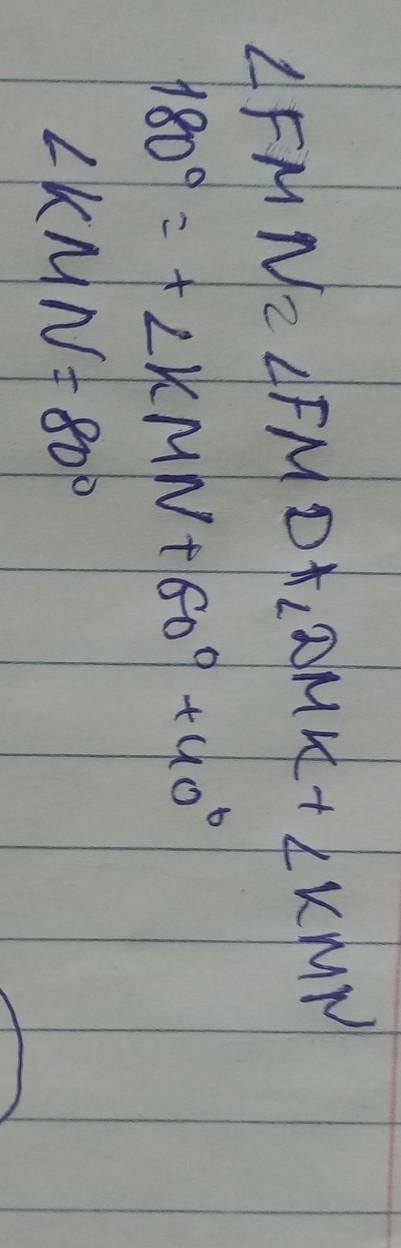 ∠FMN = ∠FMD + ∠DMK + ∠KMN
180° = + ∠KMN + 60° + 40°
∠KMN = 80°